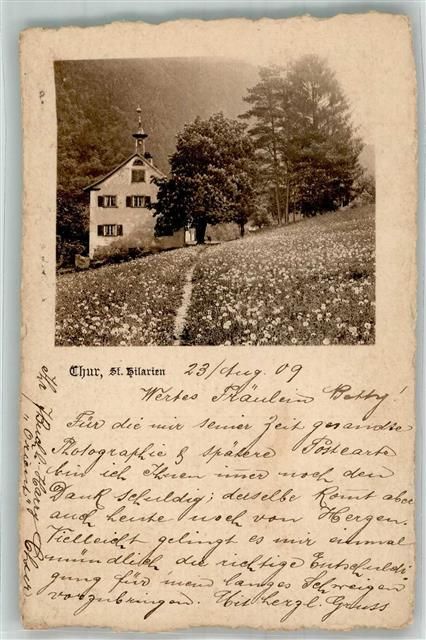 Chur, St. Hilarien
23/Aug. 09
Wertes Fräulein Betty!
Für die mir seiner Zeit gesandte
Photographie & spätere Postcarte
bin ich Ihnen imer noch den
Dank schuldig; derselbe komt aber
auch heute noch von Herzen.
Vielleicht gelingt es mir einmal
mündlich die richtige Entschuldi
gung für mein langes Schweigen
vorzubringen. Mit herzl. Gruss
Ihr
Chur